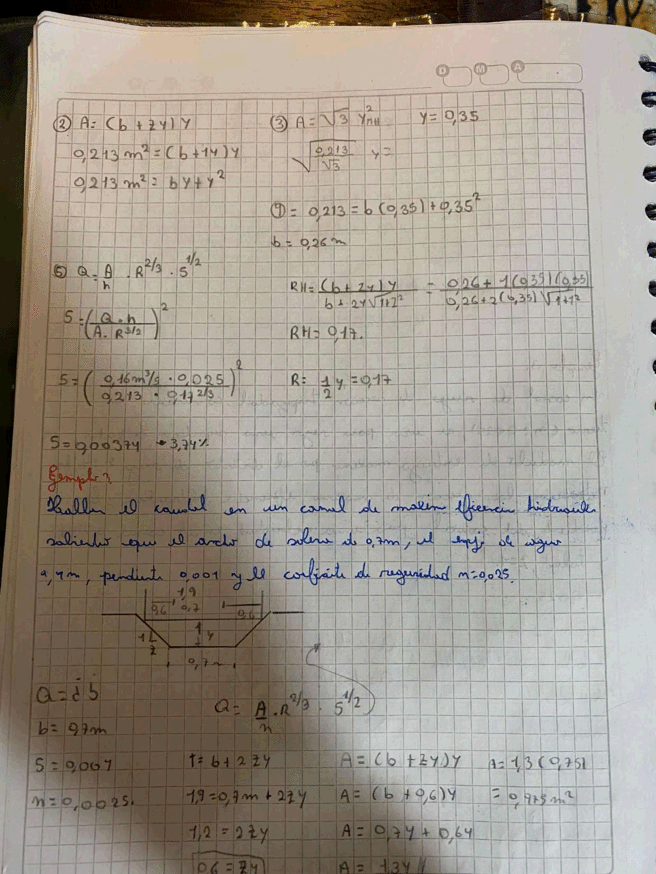 D M A
② A = (b + zy) y
0,213 m² = (b + 1y) y
0,213 m² = by + y²
③ A = √3 y²
y = 0,35
√(0,213/√3) y =
④ = 0,213 = b (0,35) + 0,35²
b = 0,26 m
⑤ Q = A/n · R^2/3 · S^1/2
S = (Q · n / A · R^3/2)²
RH = (b + zy) y / b + 2y √1+z² = 0,26 + 1(0,35)(0,35) / 0,26 + 2(0,35) √1+1²
RH = 0,17.
S = (0,16 m³/s · 0,025 / 0,213 · 0,17^2/3)²
R: 1/2 y = 0,17
S = 0,00374 → 3,74%
Ejemplo
Hallar el caudal en un canal de maxim eficiencia hidraulic
sabiendo que el ancho de solera de 0,7m, el de agua
1,9m, pendiente 0,001 y el coefiste de rugosidad n=0,025.
1,9
0,6 0,7 0,6
1 y
z
0,7m
Q = ¿?
b = 0,7m
S = 0,001
n = 0,0025.
Q = A/n · R^2/3 · S^1/2
T = b + 2 zy
1,9 = 0,7m + 2zy
1,2 = 2zy
0,6 = zy
A = (b + zy) y
A = (b + 0,6) y
A = 0,7y + 0,6y
A = 1,3y
A = 1,3 (0,75)
= 0,975 m²